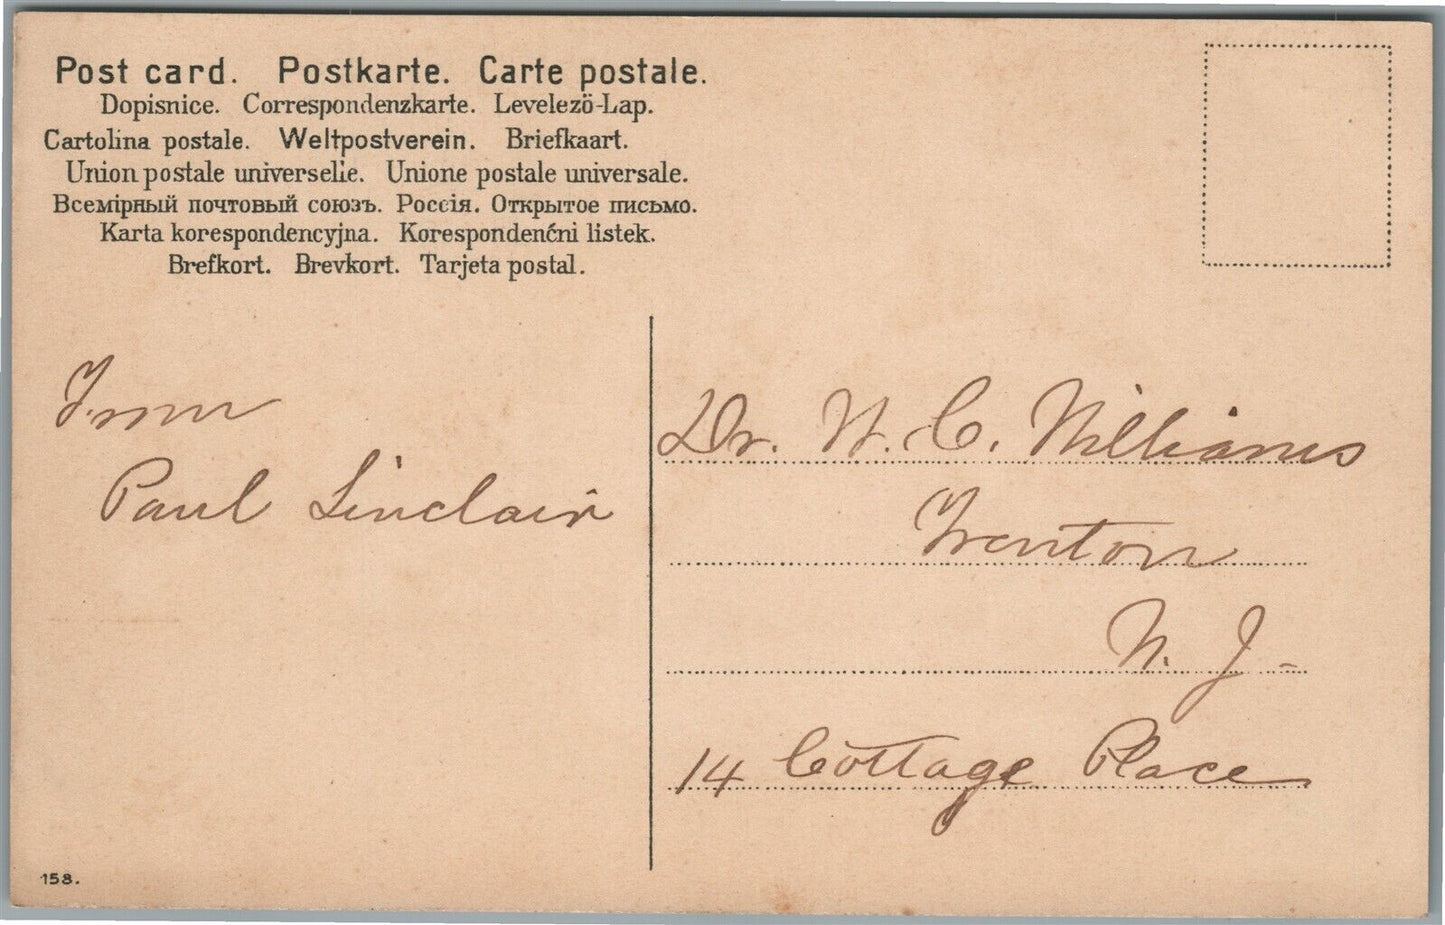 Post card. Postkarte. Carte postale.
Dopisnice. Correspondenzkarte. Levelezö-Lap.
Cartolina postale. Weltpostverein. Briefkaart.
Union postale universelle. Unione postale universale.
Всемірный почтовый союзъ. Россія. Открытое письмо.
Karta korespondencyjna. Korespondenčni listek.
Brefkort. Brevkort. Tarjeta postal.
From
Paul Sinclair
158.
Dr. W. C. Williams
Trenton
N. J-
14 Cottage Place